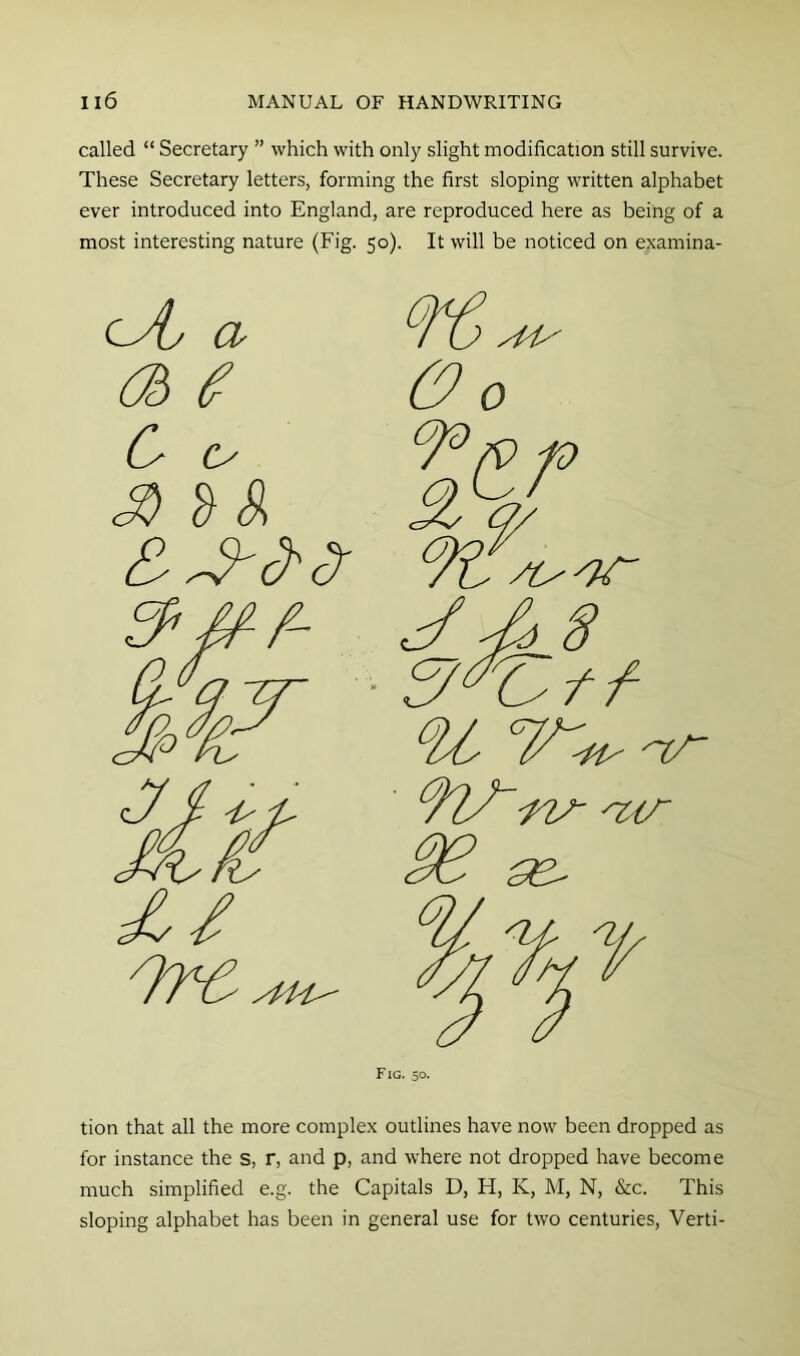 116 MANUAL OF HANDWRITING
called “ Secretary ” which with only slight modification still survive.
These Secretary letters, forming the first sloping written alphabet
ever introduced into England, are reproduced here as being of a
most interesting nature (Fig. 50). It will be noticed on examina-
A a
B b
C c
D d d
E e e e
F ff f
G g g
H h
I J i j
K k
L l
M m
N n
O o
P p p
Q q
R r r
S s s
T t t
U V u v
W w w
X x
Y y y
Z z
Fig. 50.
tion that all the more complex outlines have now been dropped as
for instance the s, r, and p, and where not dropped have become
much simplified e.g. the Capitals D, H, K, M, N, &c. This
sloping alphabet has been in general use for two centuries, Verti-